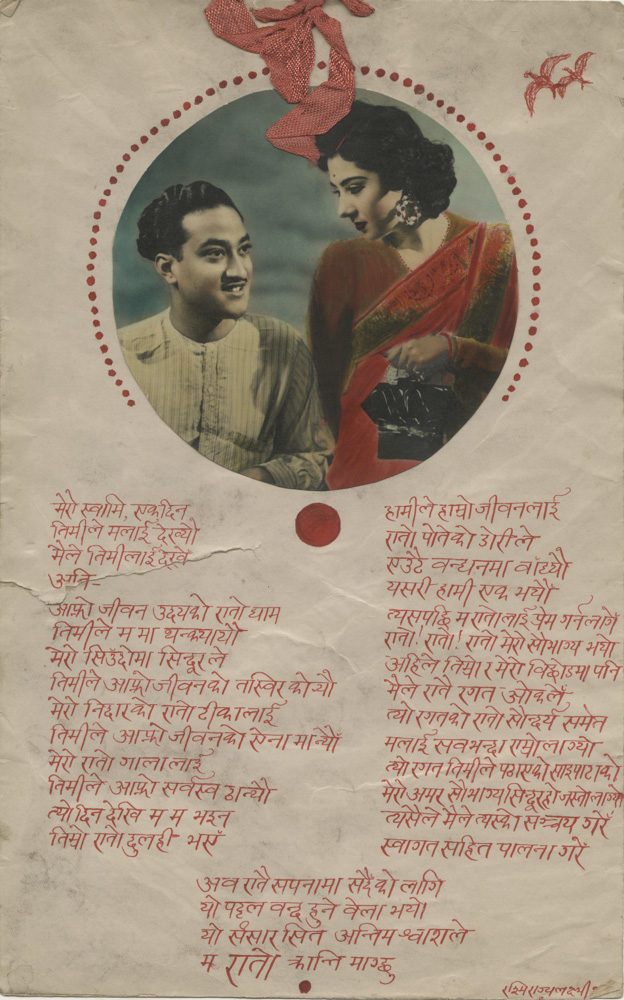 मेरो स्वामि, एकदिन
तिमीले मलाई देख्यौ
मैले तिमीलाई देखें
अनि—
आफ्नो जीवन उदयको रातो घाम
तिमीले म मा थन्क्यायौ
मेरो सिउँदोमा सिन्दूरले
तिमीले आफ्नो जीवनको तस्विर कोर्‍यौ
मेरो निदारको रातो टीकालाई
तिमीले आफ्नो जीवनको ऐना मान्यौ
मेरो रातो गालालाई
तिमीले आफ्नो सर्वस्व ठान्यौ
त्यो दिन देखि म म भइन
तिम्रो रातो दुलही भएँ
हामीले हाम्रो जीवनलाई
रातो पोतेको डोरीले
एउटै वन्धनमा वाँध्यौ
यसरी हामी एक भयौ
त्यसपछि म रातोलाई प्रेम गर्नलागें
रातो! रातो! रातो मेरो सौभाग्य भयो
अहिले तिम्रो र मेरो विछोडमा पनि
मैले रातै रगत ओकलें
त्यो रगतको रातो सौन्दर्य समेत
मलाई सवभन्दा राम्रो लाग्यो
त्यो रगत तिमीले पठाएको साइपाटाको
मेरो अमर सौभाग्य सिन्दूर हो जस्तो लाग्यो
त्यसैले मैले त्यस्को सञ्चय गरें
स्वागत सहित पालना गरें
अव रातै सपनामा सदैको लागि
यो पट्टल वन्द हुने वेला भयो
यो संसार सित अन्तिम श्वाशले
म रातो क्रान्ति माग्छु
रश्मिराज्यलक्ष्मी